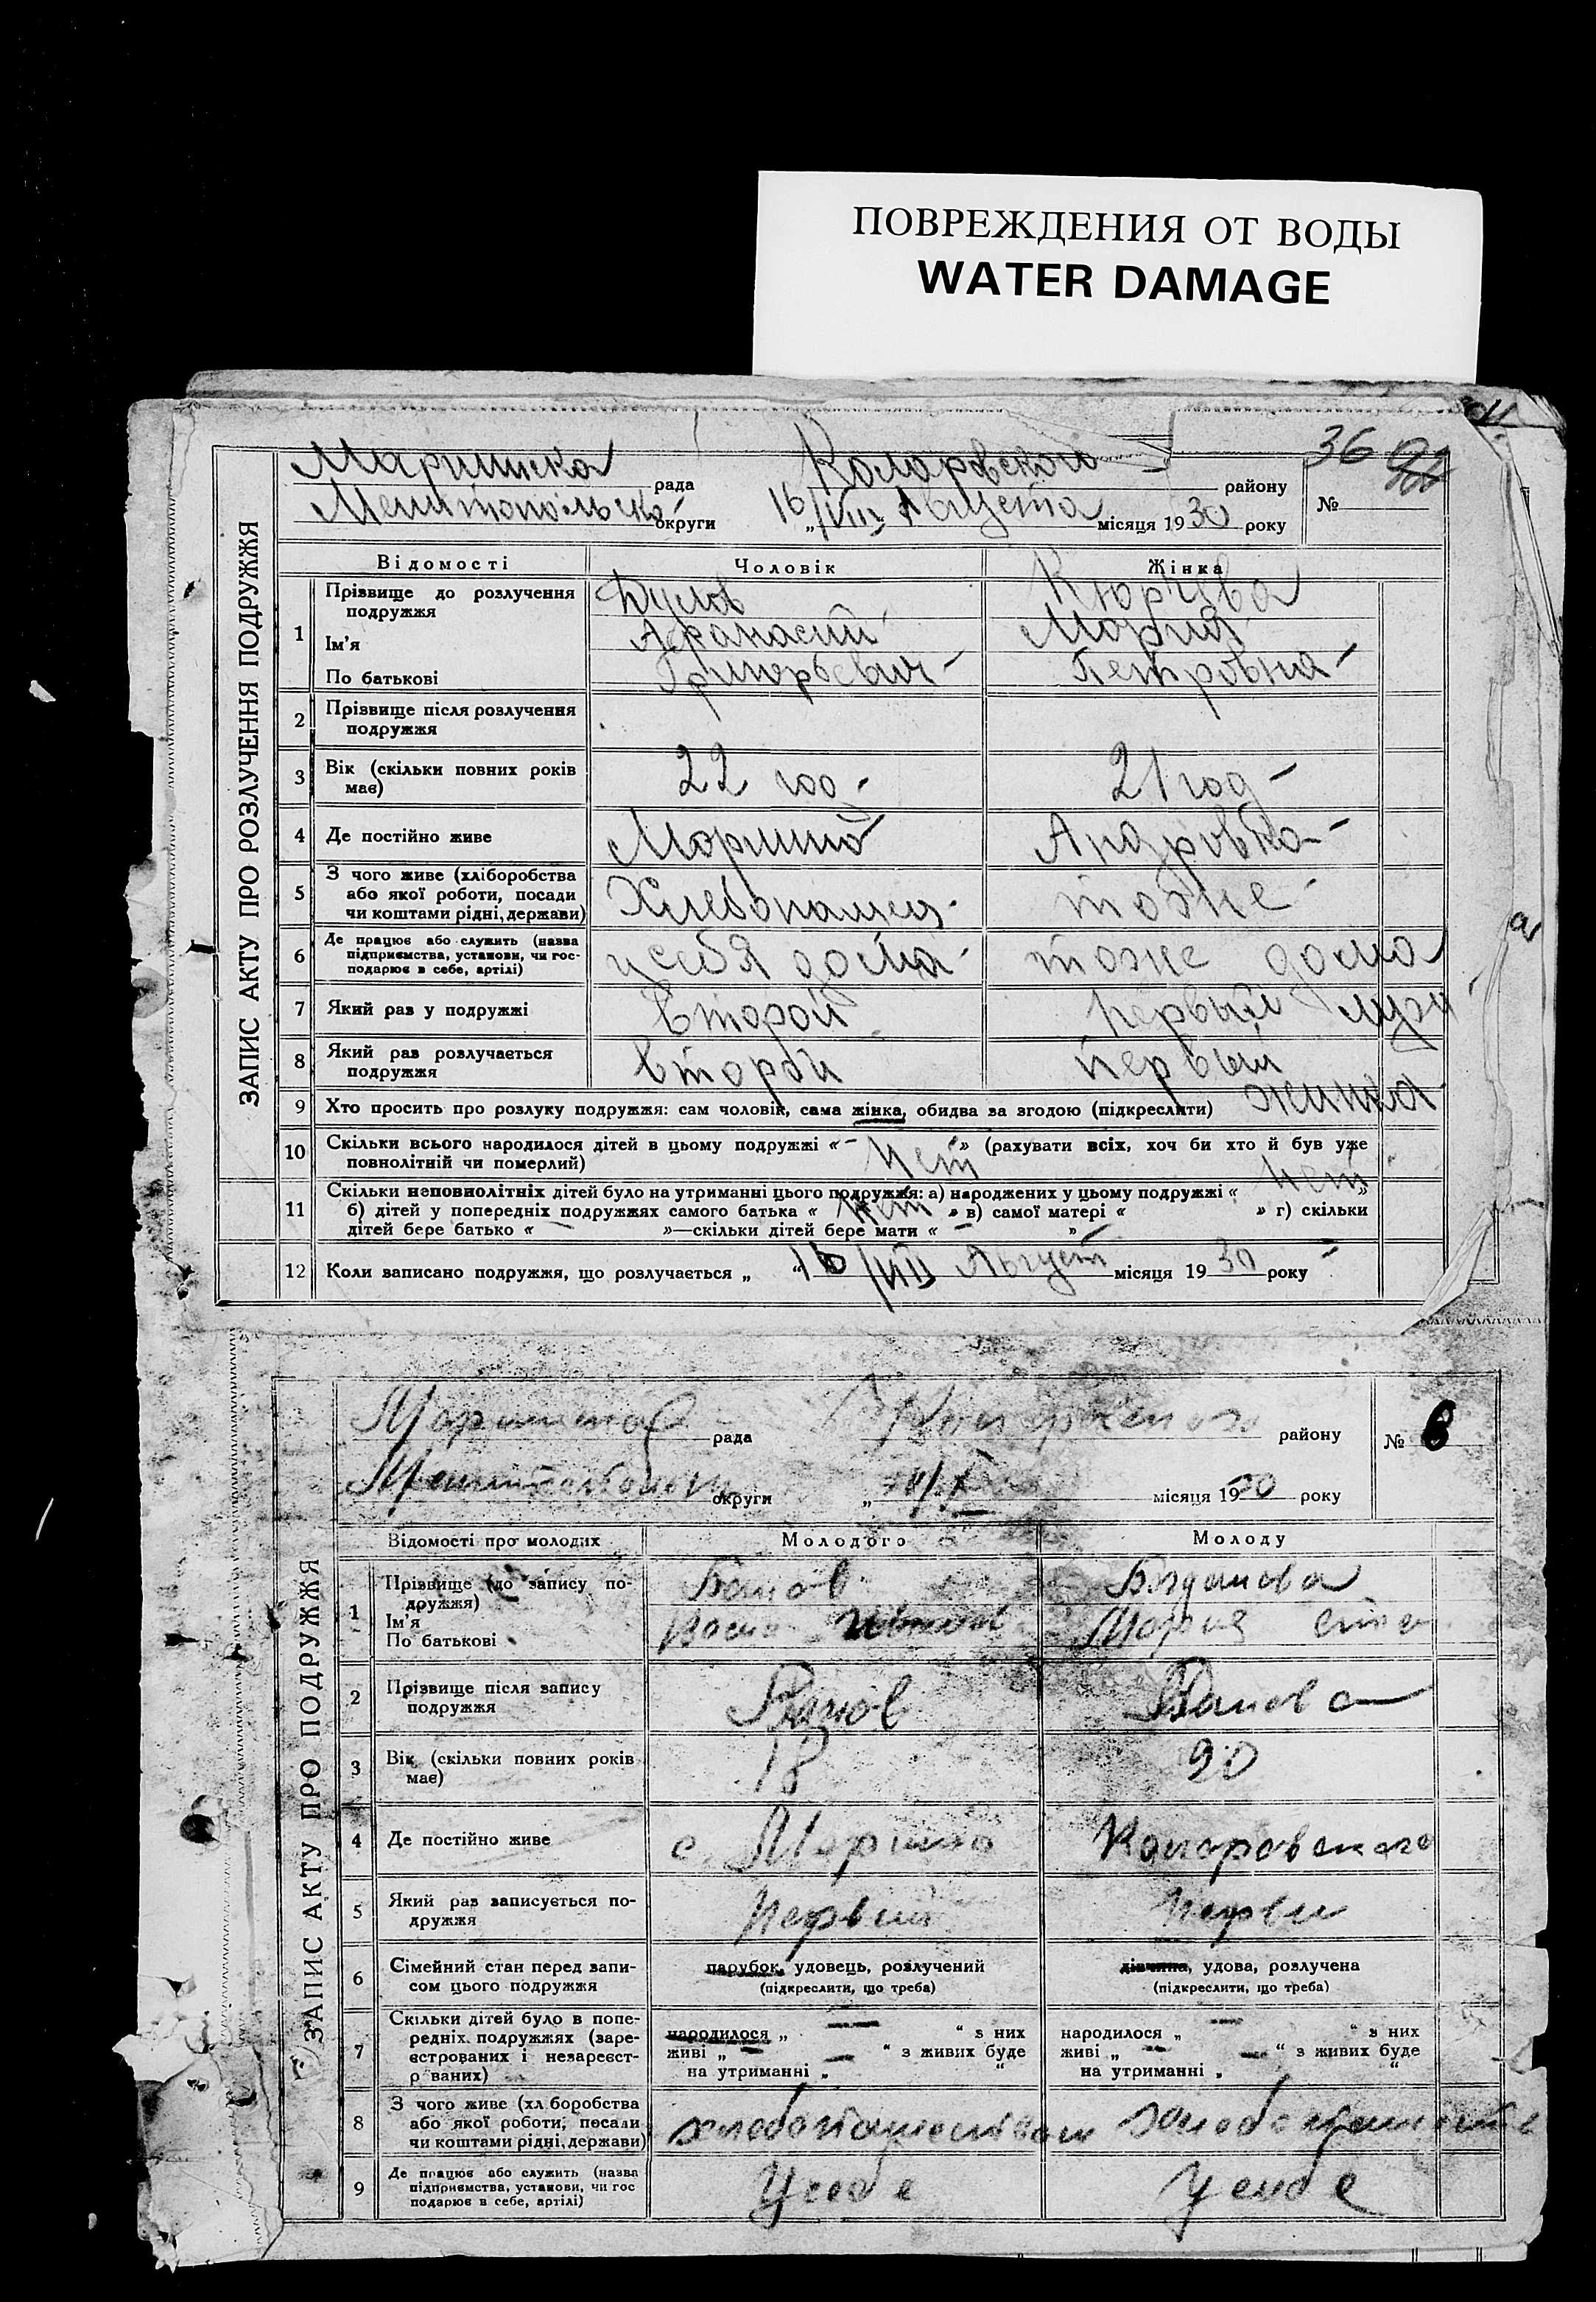 ПОВРЕЖДЕНИЯ ОТ ВОДЫ
WATER DAMAGE
36
ЗАПИС АКТУ ПРО РОЗЛУЧЕННЯ ПОДРУЖЖЯ
рада Коларовского району №
округи „16/VIII Августа місяця 1930 року
Відомості Чоловік Жінка
1 Прізвище до розлучення подружжя Кюркчева
Ім'я Афанасий Мария
По батькові Григорьевич Петровна
2 Прізвище після розлучення
подружжя
3 Вік (скільки повних років 22 год 21 год
має)
4 Де постійно живе Марино Андровка
5 З чого живе (хліборобства
або якої роботи, посади
чи коштами рідні, держави) Хлебопашец тоже
6 Де працює або служить (назва
підприємства, установи, чи гос-
подарює в себе, артілі) у себя дома тоже дома
7 Який раз у подружжі Второй первый мужа
8 Який раз розлучається
подружжя второй первый
9 Хто просить про розлуку подружжя: сам чоловік, сама жінка, обидва за згодою (підкреслити)
10 Скільки всього народилося дітей в цьому подружжі «нет» (рахувати всіх, хоч би хто й був уже
повнолітній чи померлий)
11 Скільки неповнолітніх дітей було на утриманні цього подружжя: а) народжених у цьому подружжі «нет»
б) дітей у попередніх подружжях самого батька «нет» в) самої матері « » г) скільки
дітей бере батько « — »—скільки дітей бере мати « — »
12 Коли записано подружжя, що розлучається „16/VIII Август місяця 1930 року
ЗАПИС АКТУ ПРО ПОДРУЖЖЯ
рада району № 6
округи „ місяця 1930 року
Відомості про молодих Молодого Молоду
1 Прізвище (до запису по-
дружжя) Банов Богданова
Ім'я
По батькові Мария
2 Прізвище після запису
подружжя Банов Банова
3 Вік (скільки повних років
має) 18 20
4 Де постійно живе с. Марино Коларовского
5 Який раз записується по-
дружжя Первый Первы
6 Сімейний стан перед запи-
сом цього подружжя парубок, удовець, розлучений дівчина, удова, розлучена
(підкреслити, що треба) (підкреслити, що треба)
7 Скільки дітей було в попе-
редніх подружжях (заре-
єстрованих і незареєст-
р ваних)
народилося „ — “ з них народилося „ — “ з них
живі „ — “ з живих буде живі „ — “ з живих буде
на утриманні „ — “ на утриманні „ — “
8 З чого живе (хл боробства
або якої роботи, посади
чи коштами рідні, держави) хлебопашеством
9 Де працює або служить (назва
підприємства, установи, чи гос
подарює в себе, артілі) У себе У себе